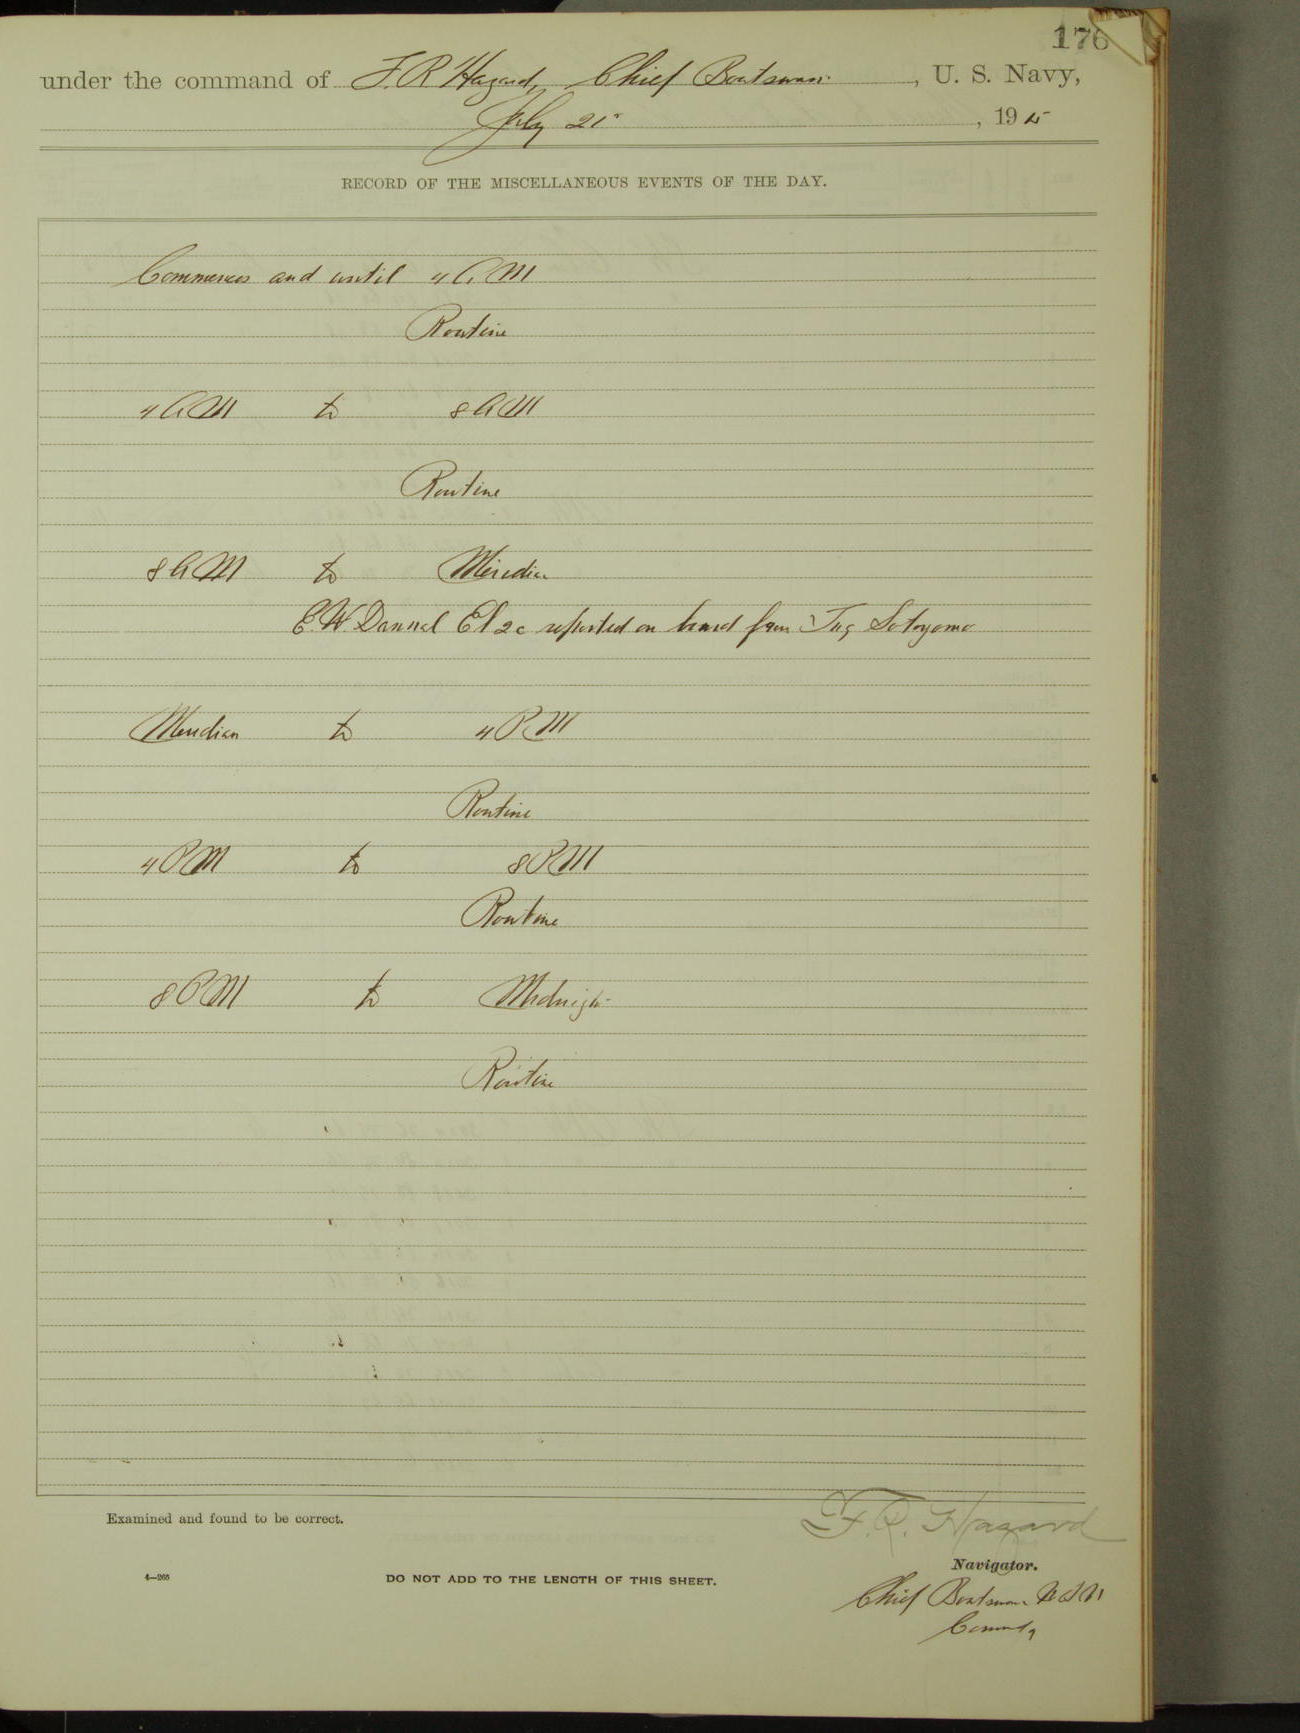 176
under the command of F. R. Hazard, Chief Boatswain, U. S. Navy,
July 21, 1915
RECORD OF THE MISCELLANEOUS EVENTS OF THE DAY.
Commences and until 4 AM
Routine
4 AM to 8 AM
Routine
8 AM to Meridian
E. W. El 2c reported on board from Tug Sotoyomo
Meridian to 4 PM
Routine
4 PM to 8 PM
Routine
8 PM to Midnight
Routine
Examined and found to be correct.
F. R. Hazard
Navigator.
4—265
DO NOT ADD TO THE LENGTH OF THIS SHEET.
Chief Boatswain U S N
Comm'd'g